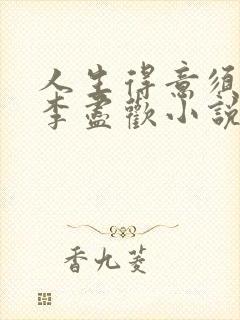 人生得意須
李盡歡小說
香九菱